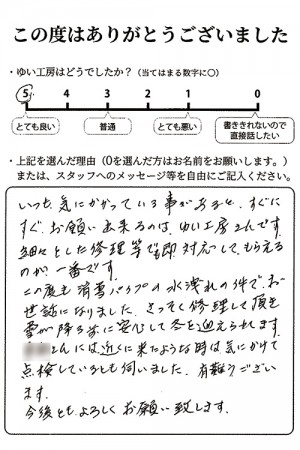 この度はありがとうございました
・ゆい工房はどうでしたか?(当てはまる数字に○)
5 4 3 2 1 0
とても良い 普通 とても悪い 書ききれないので直接話したい
・上記を選んだ理由(0を選んだ方はお名前をお願いします。)
または、スタッフへのメッセージ等を自由にご記入ください。
いつも気にかかっている事があると、すぐに
すぐお願い出来るのは、ゆい工房さんです。
細々とした修理等でも即対応してもらえる
のが一番です。
この度も消雪パイプの水洩れの件で、お
世話になりました。さっそく修理して頂き
雪が降る前に安心して冬を迎えられます。
さんには、近くに来たような時は気にかけて
点検しているとも伺いました。有難うござい
ます。
今後ともよろしくお願い致します。